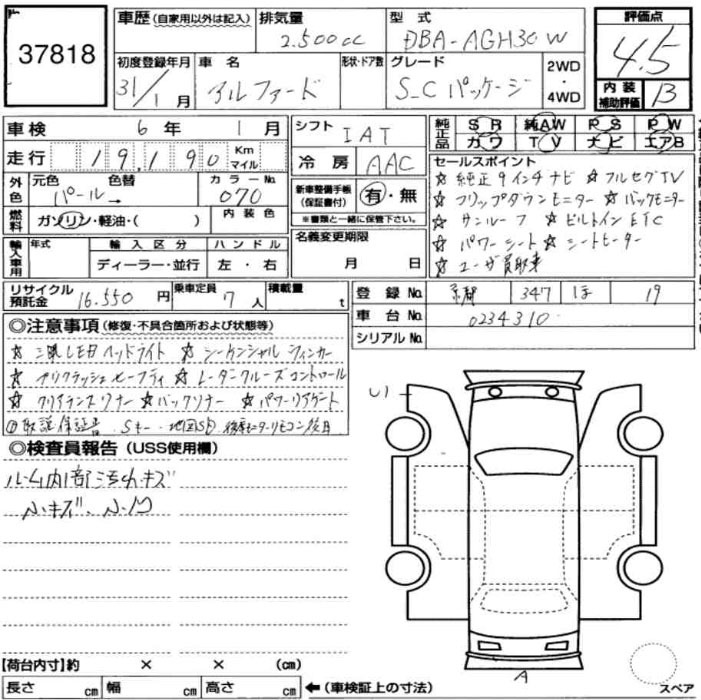 37818
車歴 (自家用以外は記入) 排気量 2.500cc 型式 DBA-AGH30W 評価点 4.5
初度登録年月 31/1月 車名 アルファード 形状・ドア数 グレード S_C パッケージ 2WD・4WD 内装補助評価 B
車検 6年 1月 シフト IAT 純正品 SR 純AW PS PW
カワ TV ナビ エアB
走行 19,190 Km マイル 冷房 AAC
セールスポイント
外色 元色 パール 色替 → カラーNo. 070 新車整備手帳 (保証書付) 有・無
※書類と一緒に保管下さい。
☆純正9インチナビ ☆フルセグTV
☆フリップダウンモニター ☆バックモニター
☆サンルーフ ☆ビルトインETC
☆パワーシート ☆シートヒーター
☆ユーザ買取車
燃料 ガソリン・軽油・( ) 内装色
名義変更期限 月 日
輸入車用 年式 輸入区分 ハンドル
ディーラー・並行 左・右
リサイクル預託金 16.550円 乗車定員 7人 積載量 t
登録No. 京都 347 ほ 19
車台No. 0234310
シリアルNo.
◎注意事項 (修復・不具合箇所および状態等)
☆三眼LEDヘッドライト ☆シーケンシャルウィンカー
☆プリクラッシュセーフティ ☆レーダークルーズコントロール
☆クリアランスソナー ☆バックソナー ☆パワーリアゲート
取説 保証書 Sキー 地図SD 後席モニターリモコン後日
◎検査員報告 (USS使用欄)
ルーム内部汚れキズ
小キズ、小凹
U1
A
スペア
【荷台内寸】約 × × (cm)
長さ cm 幅 cm 高さ cm ←(車検証上の寸法)